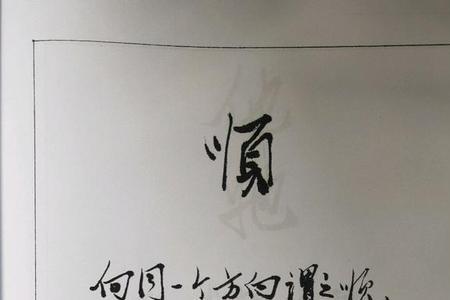 順
向同一个方向謂之順